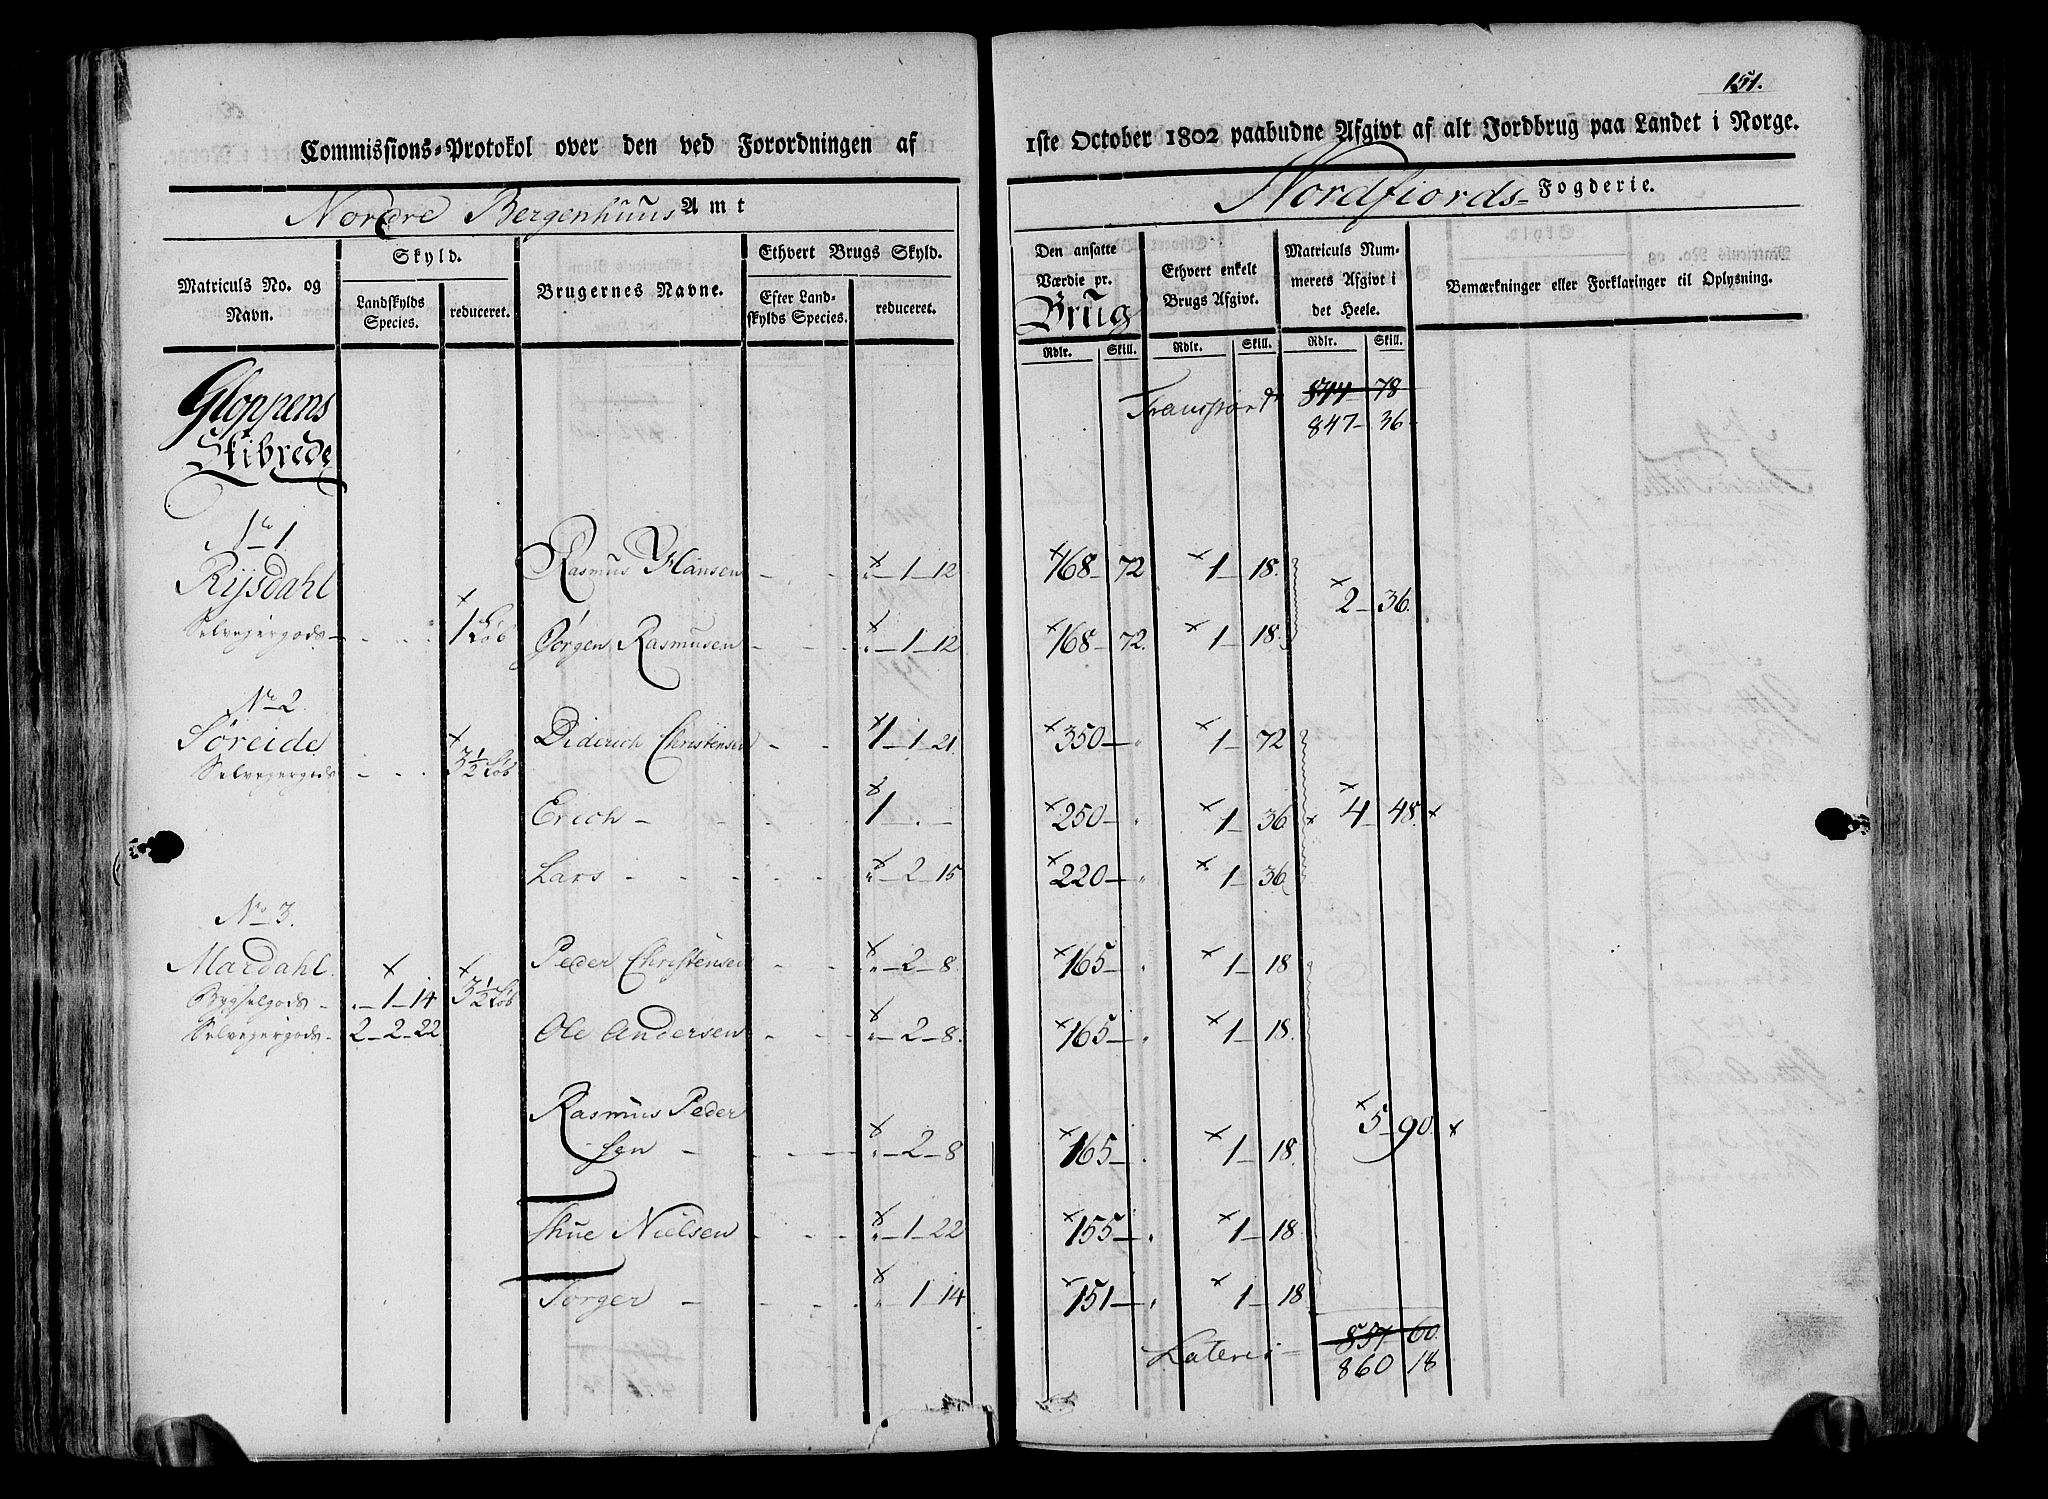 151.
Commissions-Protokol over den ved Forordningen af 1ste October 1802 paabudne Afgivt af alt Jordbrug paa Landet i Norge.
Nordre Bergenhuus Amt
Nordfiords- Fogderie.
Matriculs No. og Navn.
Skyld.
Landskylds Species.
reduceret.
Brugernes Navne.
Ethvert Brugs Skyld.
Efter Landskylds Species.
reduceret.
Den ansatte Værdie pr. Brug
Ethvert enkelt Brugs Afgivt.
Matriculs Nummerets Afgivt i det Heele.
Bemærkninger eller Forklaringer til Oplysning.
Rdlr. Skill. Rdlr. Skill. Rdlr. Skill.
Gloppens
Skibrede
Transport 844 78
847 36
No 1.
Rysdahl
Selveyergods 1 Løb
Rasmus Hansen „ 1 12 168 72 1 18
2 36.
Jørgen Rasmusen „ 1 12 168 72. 1 18.
No 2.
Søreide
Selveyergods 3 1/2 Løb
Diderich Christensen 1 1 21. 350 „ 1 72
Erich 1 . 250 „ 1 36 4 48.
Lars „ 2 15 220 „ 1 36
No 3.
Mardahl.
Bygselgods „ 1 14 3 1/2 Løb
Selveyergods 2 2 22
Peder Christensen „ 2 8. 165 „ 1 18
Ole Andersen „ 2 8. 165 „ 1 18.
Rasmus Peder
sen „ 2 8 165 „ 1 18. 5 90.
Thue Nielsen „ 1 22 155 „ 1 18
Torger „ 1 14 151 „ 1 18
Lateris 857 60.
860 18